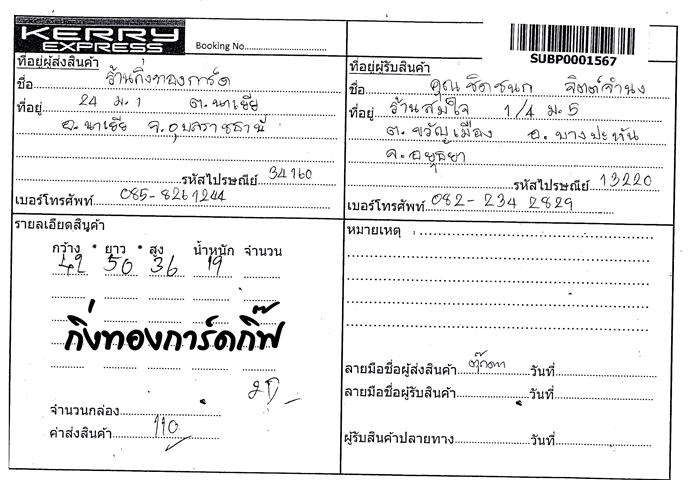 KERRY
EXPRESS
Booking No.
SUBP0001567
ที่อยู่ผู้ส่งสินค้า
ชื่อ ร้านกิ่งทองการ์ด
ที่อยู่ 24 ม.1 ต.นาเยีย
อ.นาเยีย จ.อุบลราชธานี
รหัสไปรษณีย์ 34160
เบอร์โทรศัพท์ 085-8261244
ที่อยู่ผู้รับสินค้า
ชื่อ คุณชิดชนก จิตต์จำนง
ที่อยู่ ร้านสมใจ 1/4 ม.5
ต.ขวัญเมือง อ.บางปะหัน
จ.อยุธยา
รหัสไปรษณีย์ 13220
เบอร์โทรศัพท์ 082-234 2829
รายละเอียดสินค้า
กว้าง * ยาว * สูง น้ำหนัก จำนวน
42 50 36 19
กิ่งทองการ์ดกิ๊ฟ
จำนวนกล่อง
ค่าส่งสินค้า 110
หมายเหตุ :
ลายมือชื่อผู้ส่งสินค้า ตุ๊กตา วันที่
ลายมือชื่อผู้รับสินค้า วันที่
ผู้รับสินค้าปลายทาง วันที่